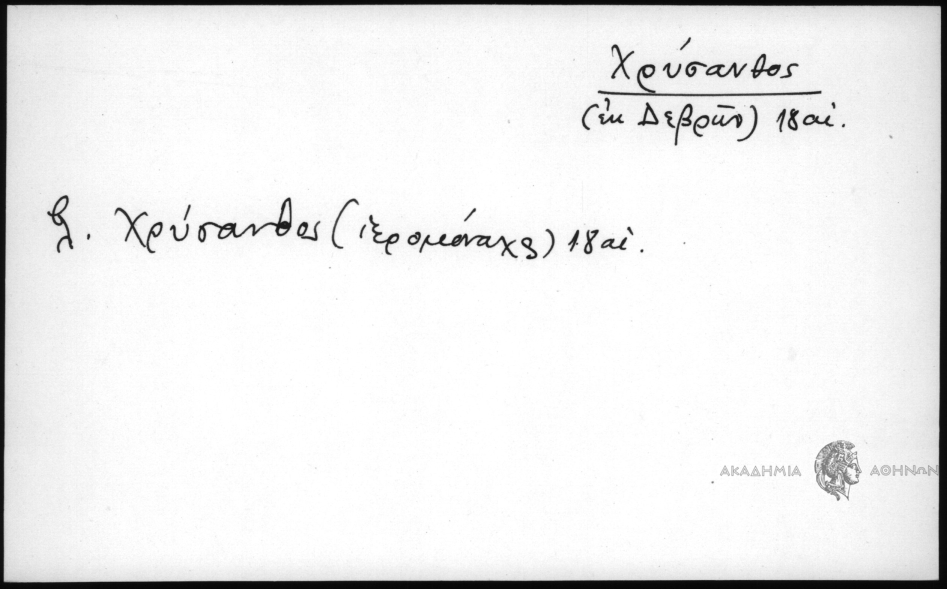 Χρύσανθος
(ἐκ Δεβρῶν) 18 αἰ.
βλ. Χρύσανθος (ἱερομόναχος) 18 αἰ.
ΑΚΑΔΗΜΙΑ ΑΘΗΝΩΝ